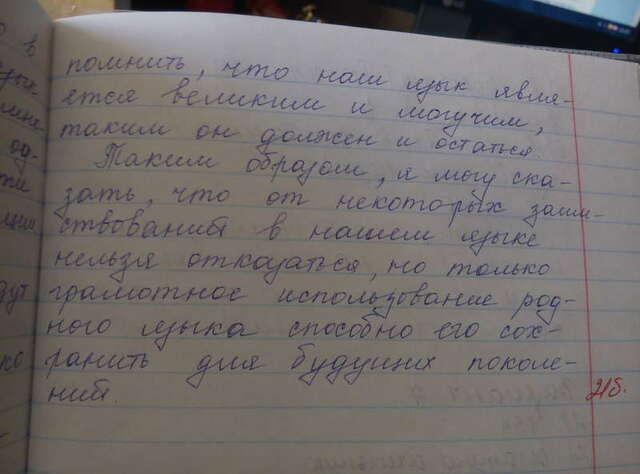 помнить, что наш язык явля-
ется великим и могучим,
таким он должен и остаться.
Таким образом, я могу ска-
зать, что от некоторых заим-
ствований в нашем языке
нельзя отказаться, но только
грамотное использование род-
ного языка способно его сох-
ранить для будущих поколе-
ний.
21б.